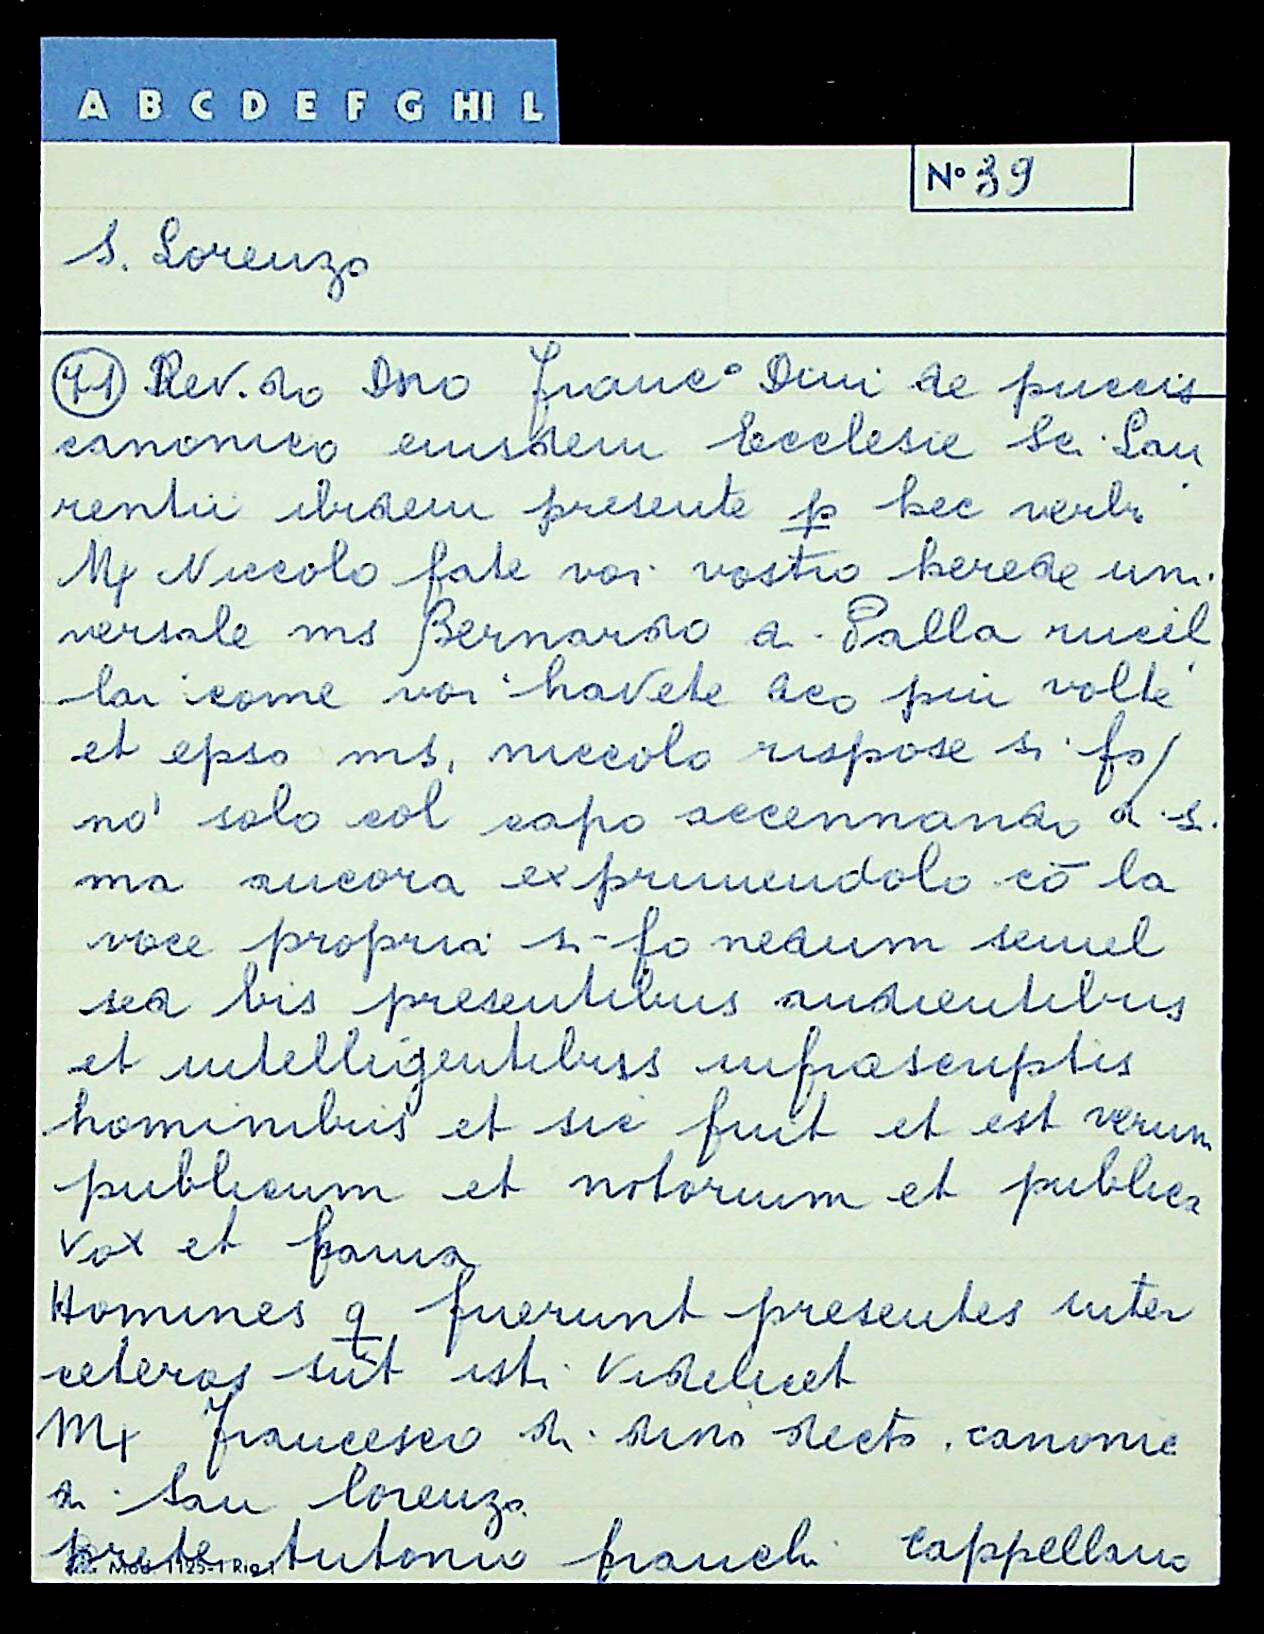 A B C D E F G HI L
N° 39
S. Lorenzo
71 Rev.do Dno Franc° Dini de puccis
canonico eiusdem Ecclesie Sc. Lau
rentii ibidem presente p hec verbi
Mx Niccolo fate voi vostro herede uni.
versale ms Bernardo di Palla rucel
lai come voi havete dco piu volte
et epso ms. niccolo rispose si fo/
no' solo col capo accennando di si.
ma ancora exprimendolo cō la
voce propria si-fo nedum semel
sed bis presentibus audientibus
et intelligentibuss infrascriptis
hominibus et sic fuit et est verum
publicum et notorium et publica
vox et fama
Homines q fuerunt presentes inter
ceteros sūt isti videlicet
Mx Francesco di dino decto canonic
di San Lorenzo
prete Antonio franchi Cappellano
Mod. 1125-1 Riga